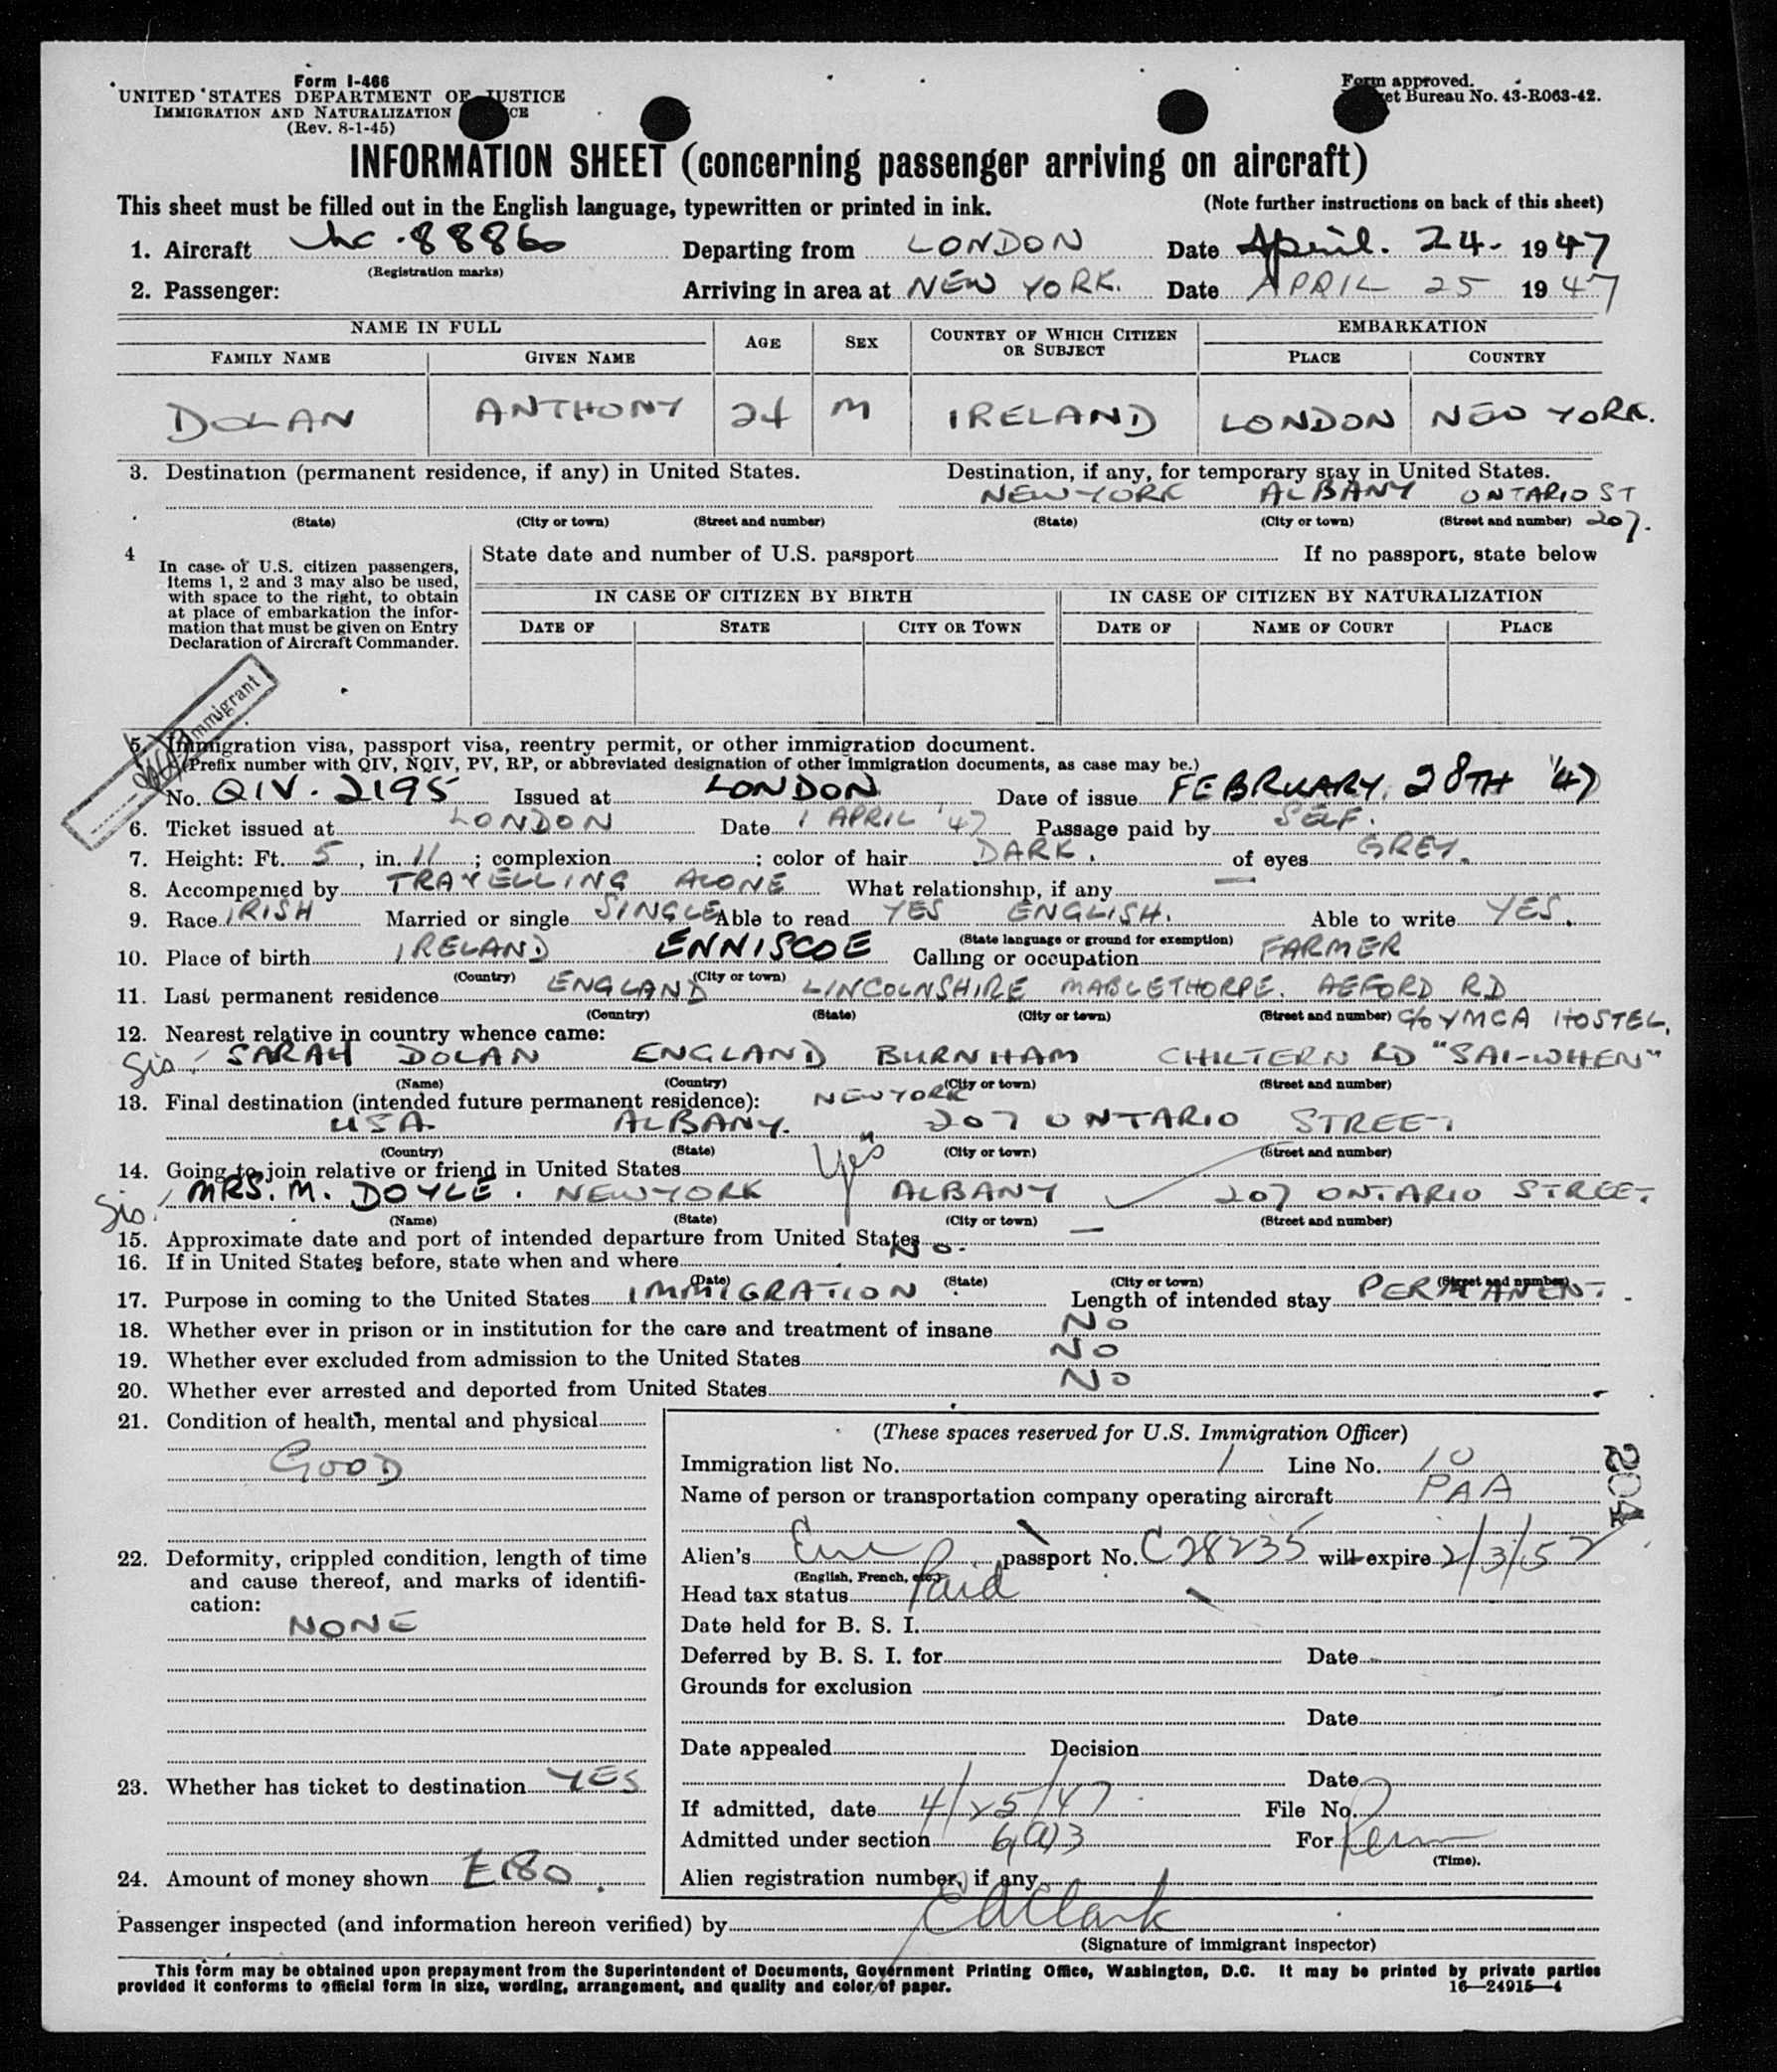 Form I-466
UNITED STATES DEPARTMENT OF JUSTICE
IMMIGRATION AND NATURALIZATION
(Rev. 8-1-45)
Form approved.
Bureau No. 43-R063-42.
INFORMATION SHEET (concerning passenger arriving on aircraft)
This sheet must be filled out in the English language, typewritten or printed in ink. (Note further instructions on back of this sheet)
1. Aircraft 8886 Departing from LONDON Date April. 24. 1947
(Registration marks)
2. Passenger: Arriving in area at NEW YORK. Date APRIL 25 1947
NAME IN FULL AGE SEX COUNTRY OF WHICH CITIZEN OR SUBJECT EMBARKATION
FAMILY NAME GIVEN NAME PLACE COUNTRY
DOLAN ANTHONY 24 M IRELAND LONDON NEW YORK.
3. Destination (permanent residence, if any) in United States. Destination, if any, for temporary stay in United States.
NEW YORK ALBANY ONTARIO ST
(State) (City or town) (Street and number) (State) (City or town) (Street and number) 207.
4 In case of U.S. citizen passengers, items 1, 2 and 3 may also be used, with space to the right, to obtain at place of embarkation the information that must be given on Entry Declaration of Aircraft Commander.
State date and number of U.S. passport If no passport, state below
IN CASE OF CITIZEN BY BIRTH IN CASE OF CITIZEN BY NATURALIZATION
DATE OF STATE CITY OR TOWN DATE OF NAME OF COURT PLACE
Immigrant
5. Immigration visa, passport visa, reentry permit, or other immigration document.
(Prefix number with QIV, NQIV, PV, RP, or abbreviated designation of other immigration documents, as case may be.)
No. QIV. 2195 Issued at LONDON Date of issue FEBRUARY, 28TH '47
6. Ticket issued at LONDON Date 1 APRIL '47 Passage paid by SELF.
7. Height: Ft. 5, in. 11; complexion; color of hair DARK. of eyes GREY.
8. Accompanied by TRAVELLING ALONE What relationship, if any —
9. Race IRISH Married or single SINGLE Able to read YES ENGLISH. Able to write YES.
(State language or ground for exemption)
10. Place of birth IRELAND ENNISCOE Calling or occupation FARMER
(Country) (City or town)
11. Last permanent residence ENGLAND LINCOLNSHIRE MABLETHORPE. AEFORD RD
(Country) (State) (City or town) (Street and number) C/O YMCA HOSTEL.
12. Nearest relative in country whence came:
Sis. SARAH DOLAN ENGLAND BURNHAM CHILTERN RD "SAI-WHEN"
(Name) (Country) (City or town) (Street and number)
13. Final destination (intended future permanent residence): NEW YORK
USA. ALBANY. 207 ONTARIO STREET
(Country) (State) (City or town) (Street and number)
14. Going to join relative or friend in United States Yes
Sis. MRS. M. DOYLE. NEW YORK ALBANY 207 ONTARIO STREET
(Name) (State) (City or town) (Street and number)
15. Approximate date and port of intended departure from United States —
16. If in United States before, state when and where No.
(Date) (State) (City or town) (Street and number)
17. Purpose in coming to the United States IMMIGRATION Length of intended stay PERMANENT.
18. Whether ever in prison or in institution for the care and treatment of insane NO
19. Whether ever excluded from admission to the United States NO
20. Whether ever arrested and deported from United States NO
21. Condition of health, mental and physical
GOOD
22. Deformity, crippled condition, length of time and cause thereof, and marks of identification:
NONE
23. Whether has ticket to destination YES
24. Amount of money shown £180.
(These spaces reserved for U.S. Immigration Officer)
Immigration list No. 1 Line No. 10
Name of person or transportation company operating aircraft PAA
204
Alien's passport No. C28235 will expire 2/3/52
(English, French, etc.)
Head tax status Paid
Date held for B. S. I.
Deferred by B. S. I. for Date
Grounds for exclusion
Date
Date appealed Decision
Date
If admitted, date 4/25/47 File No.
Admitted under section 6(a)3 For Perm
(Time).
Alien registration number, if any
Passenger inspected (and information hereon verified) by E A Clark
(Signature of immigrant inspector)
This form may be obtained upon prepayment from the Superintendent of Documents, Government Printing Office, Washington, D.C. It may be printed by private parties
provided it conforms to official form in size, wording, arrangement, and quality and color of paper. 16—24915—4